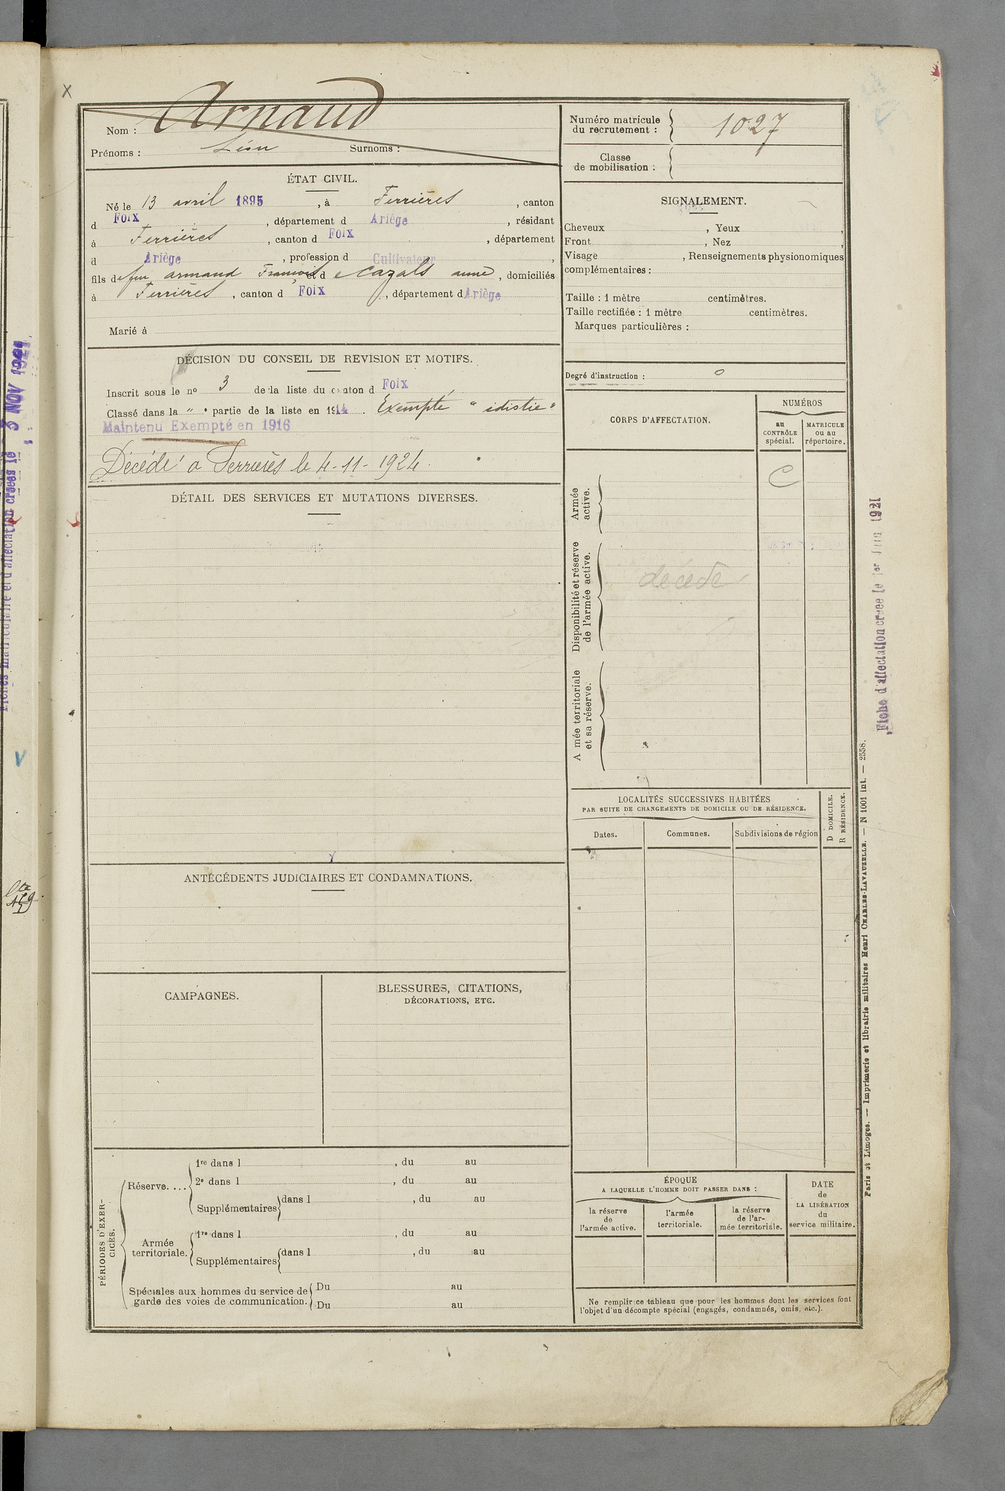 x
Arnaud
Nom :
Prénoms : Léon Surnoms :
ÉTAT CIVIL.
Né le 13 avril 1895, à Ferrières, canton
d Foix, département d Ariège, résidant
à Ferrières, canton d Foix, département
d Ariège, profession d Cultivateur,
fils de feu Arnaud François et d e Cazals Anne, domiciliés
à Ferrières, canton d Foix, département d Ariège
Marié à
DÉCISION DU CONSEIL DE REVISION ET MOTIFS.
Inscrit sous le no 3 de la liste du canton d Foix
Classé dans la " e partie de la liste en 1914. Exempté "idiotie"
Maintenu Exempté en 1916
Décédé à Ferrières le 4-11-1924.
DÉTAIL DES SERVICES ET MUTATIONS DIVERSES.
ANTÉCÉDENTS JUDICIAIRES ET CONDAMNATIONS.
CAMPAGNES.
BLESSURES, CITATIONS,
DÉCORATIONS, ETC.
PÉRIODES D'EXER-
CICES.
Réserve....
1re dans l , du au
2e dans l , du au
Supplémentaires dans l , du au
Armée
territoriale.
1re dans l , du au
Supplémentaires dans l , du au
Spéciales aux hommes du service de
garde des voies de communication.
Du au
Du au
Numéro matricule
du recrutement : 1027
Classe
de mobilisation :
SIGNALEMENT.
Cheveux , Yeux ,
Front , Nez ,
Visage , Renseignements physionomiques
complémentaires :
Taille : 1 mètre centimètres.
Taille rectifiée : 1 mètre centimètres.
Marques particulières :
Degré d'instruction : 0
CORPS D'AFFECTATION.
NUMÉROS
au
CONTRÔLE
spécial.
MATRICULE
ou au
répertoire.
Armée
active.
C
Disponibilité et réserve
de l'armée active.
décédé
A mée territoriale
et sa réserve.
LOCALITÉS SUCCESSIVES HABITÉES
PAR SUITE DE CHANGEMENTS DE DOMICILE OU DE RÉSIDENCE.
Dates.
Communes.
Subdivisions de région
D DOMICILE.
R RÉSIDENCE.
ÉPOQUE
A LAQUELLE L'HOMME DOIT PASSER DANS :
la réserve
de
l'armée active.
l'armée
territoriale.
la réserve
de l'ar-
mée territoriale.
DATE
de
LA LIBÉRATION
du
service militaire.
Ne remplir ce tableau que pour les hommes dont les services font
l'objet d'un décompte spécial (engagés, condamnés, omis, etc.).
Fiche d'affectation créée le 1er Juin 1921
Paris et Limoges. — Imprimerie et librairie militaires Henri CHARLES-LAVAUZELLE. — N 1001 int. — 2558.
Fiches matriculaire et d'affectation créées le 3 NOV 1921.